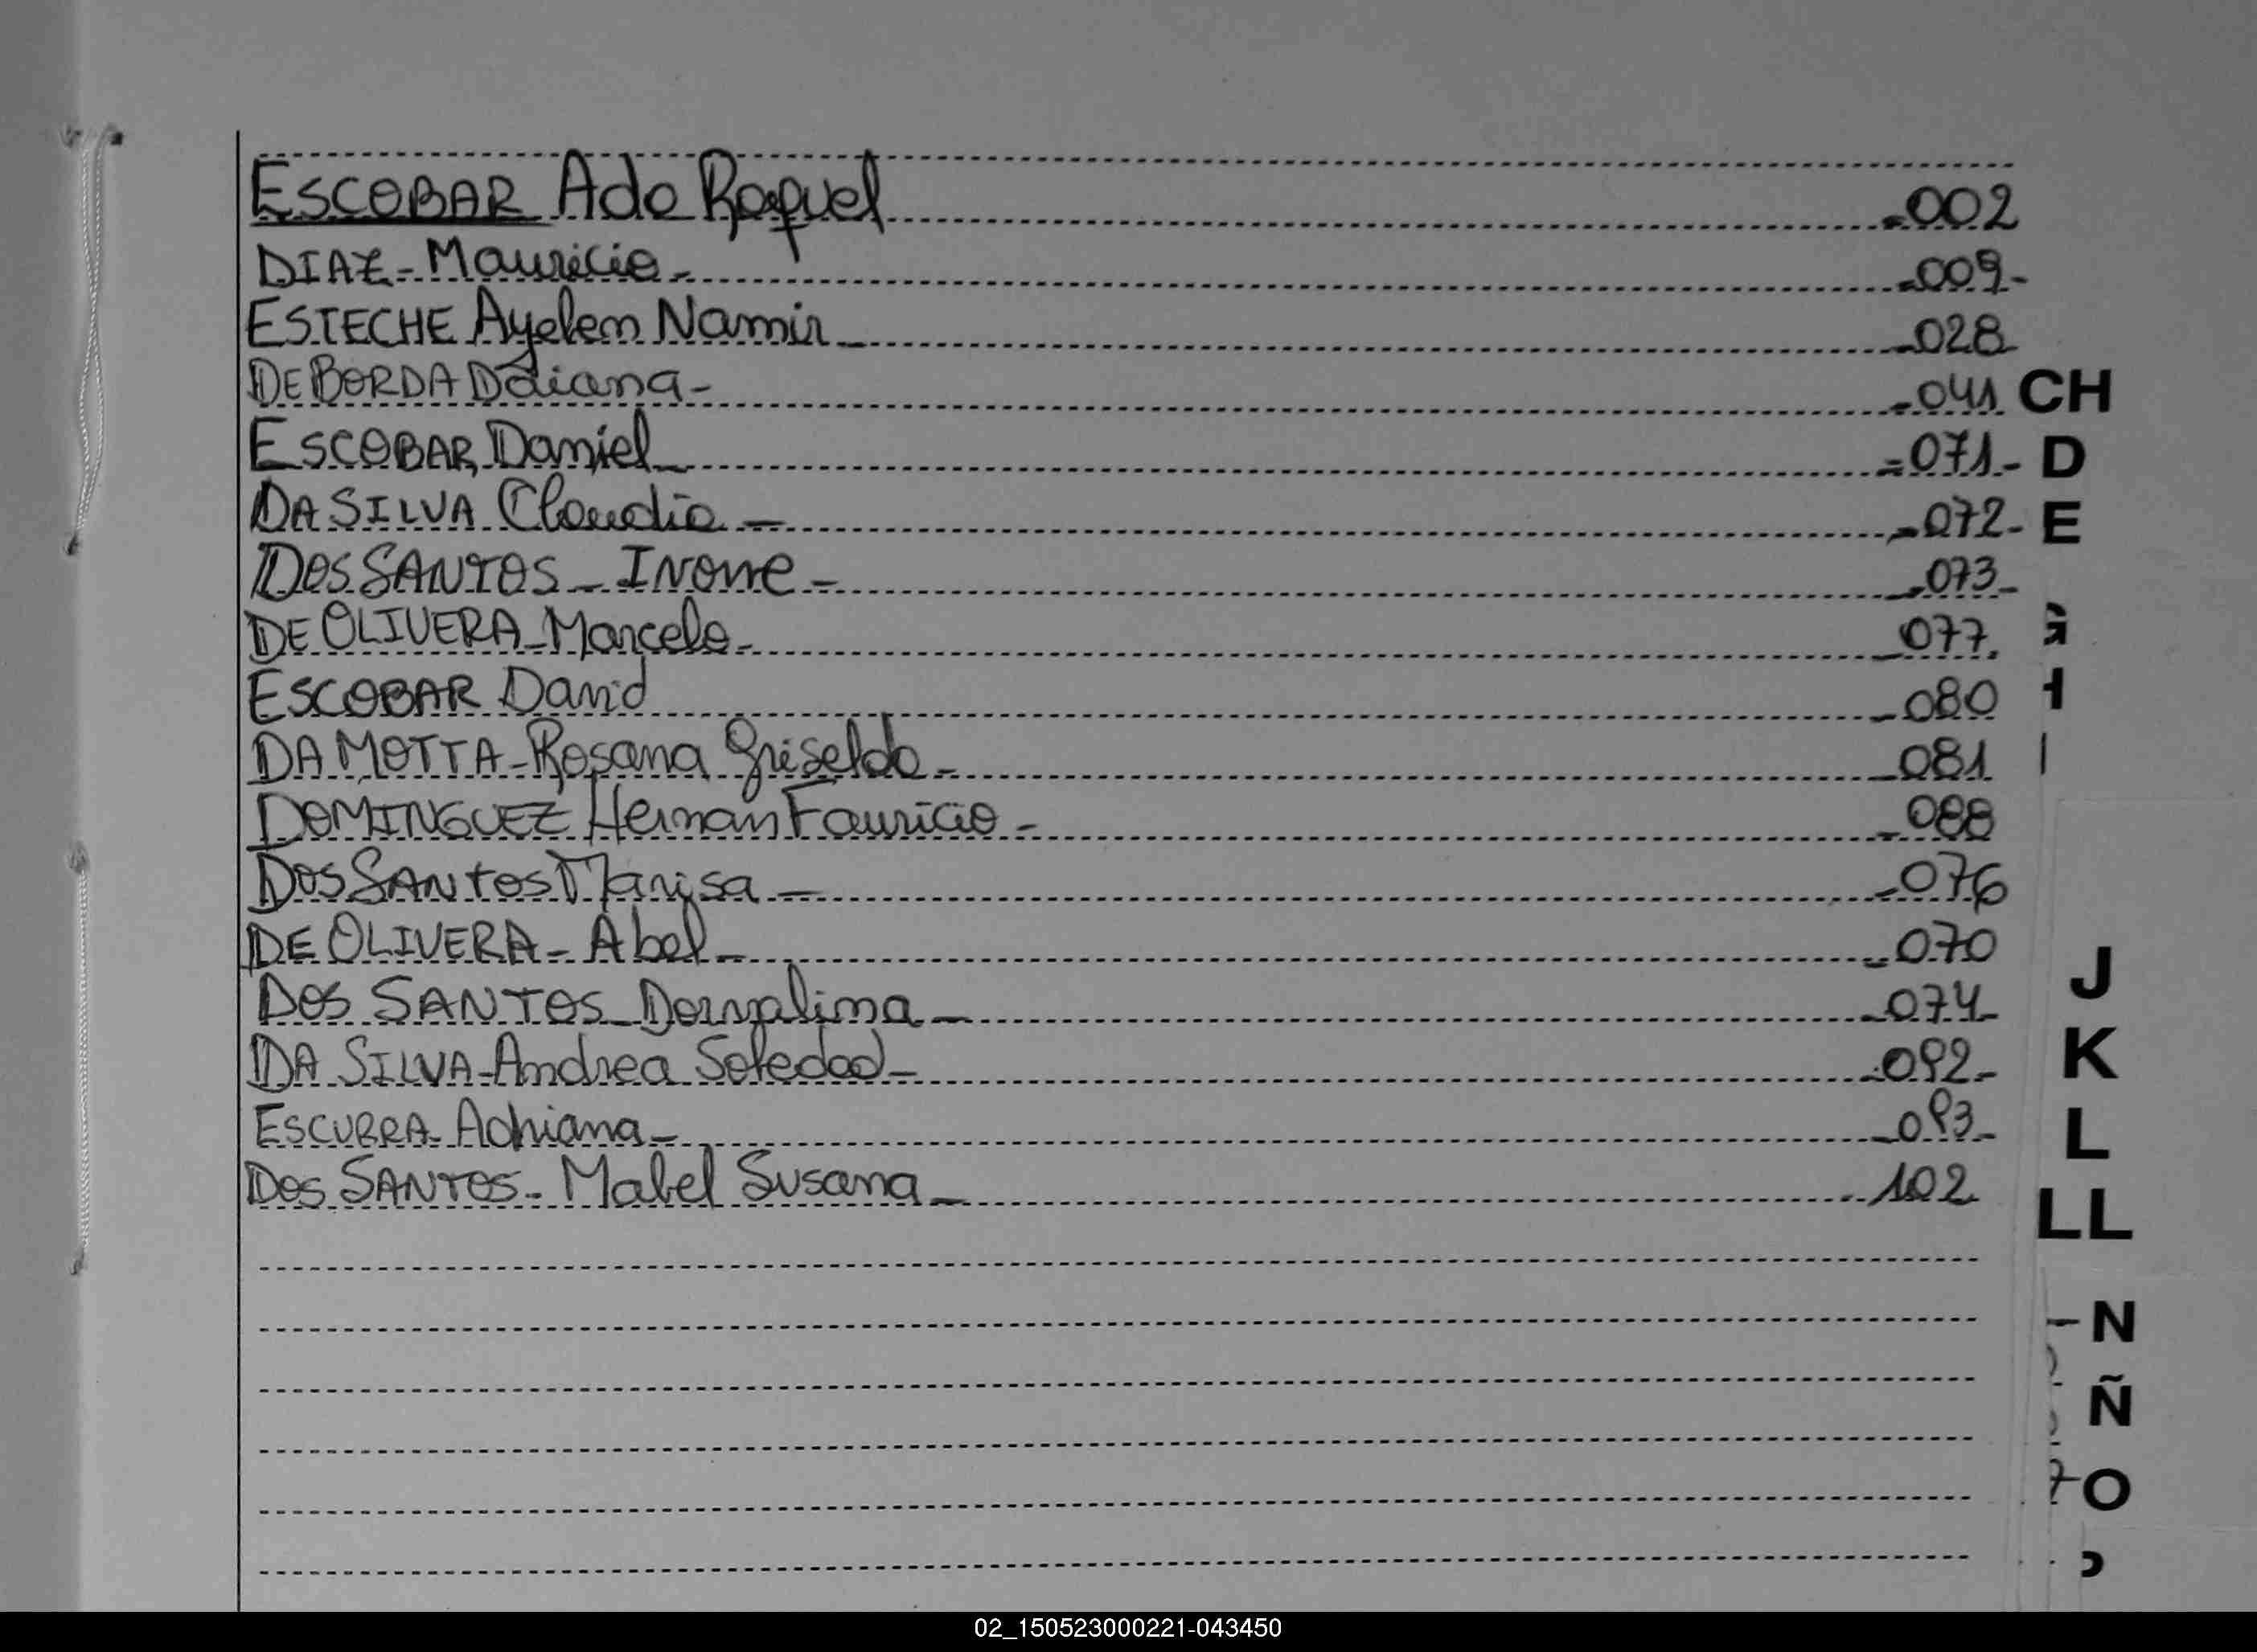 ESCOBAR Ada Raquel 002
DIAZ - Mauricio - 009 -
ESTECHE Ayelem Namir - 028
DE BORDA Daiana - 041
ESCOBAR Daniel - 071 -
DA SILVA Claudia - 072 -
DOS SANTOS - Ivone - 073 -
DE OLIVERA - Marcelo - 077
ESCOBAR David 080
DA MOTTA - Rosana Griselda - 081
DOMINGUEZ Hernan Fauricio - 088
DOS SANTOS Marisa - 076
DE OLIVERA - Abel - 070
DOS SANTOS Dorvalina - 074
DA SILVA - Andrea Soledad - 092 -
ESCUBRA Adriana - 093 -
DOS SANTOS - Mabel Susana - 102
CH
D
E
J
K
L
LL
N
Ñ
O
02_150523000221-043450